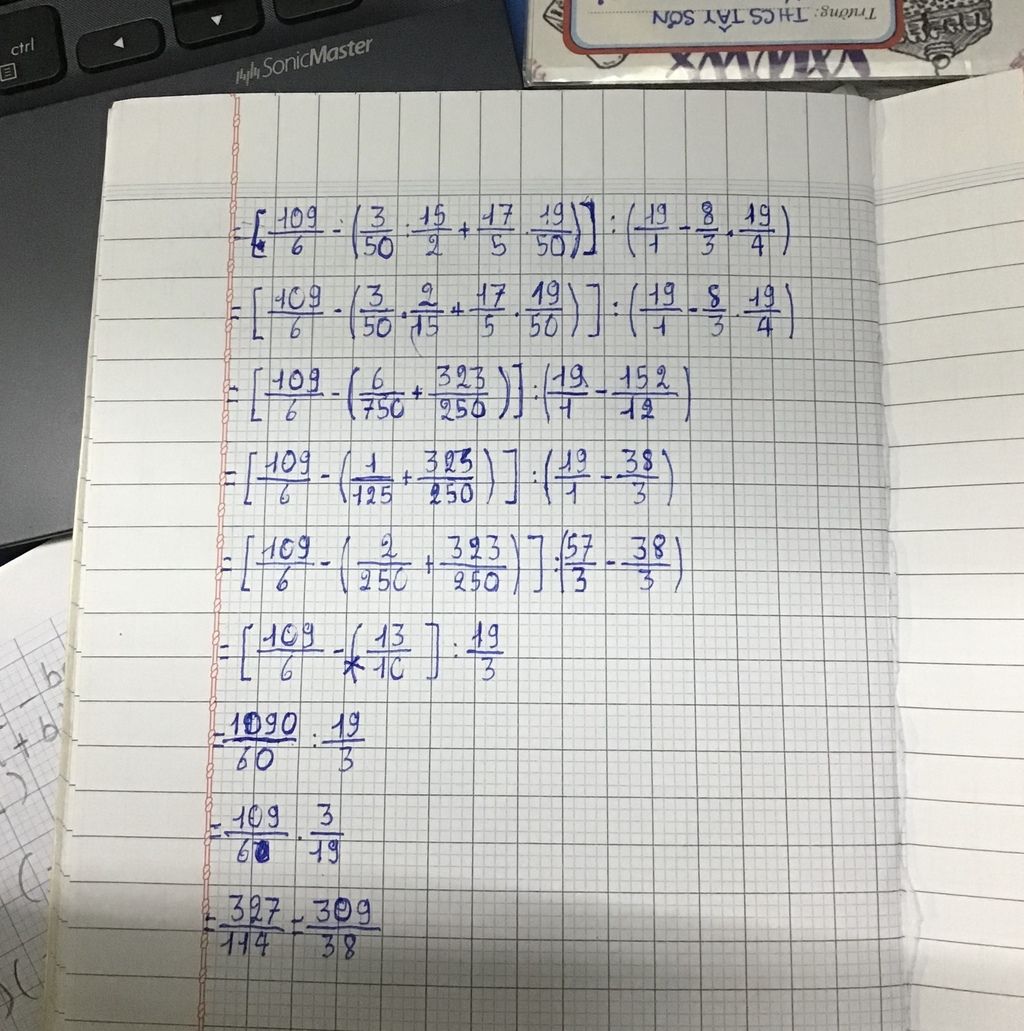 ctrl
SonicMaster
Trường: THCS TÂY SƠN
= [109/6 - (3/50 : 15/2 + 17/5 . 19/50)] : (19/1 - 8/3 . 19/4)
= [109/6 - (3/50 . 2/15 + 17/5 . 19/50)] : (19/1 - 8/3 . 19/4)
= [109/6 - (6/750 + 323/250)] : (19/1 - 152/12)
= [109/6 - (1/125 + 323/250)] : (19/1 - 38/3)
= [109/6 - (2/250 + 323/250)] : (57/3 - 38/3)
= [109/6 - (13/10] : 19/3
= 1090/60 : 19/3
= 109/60 . 3/19
= 327/114 = 309/38